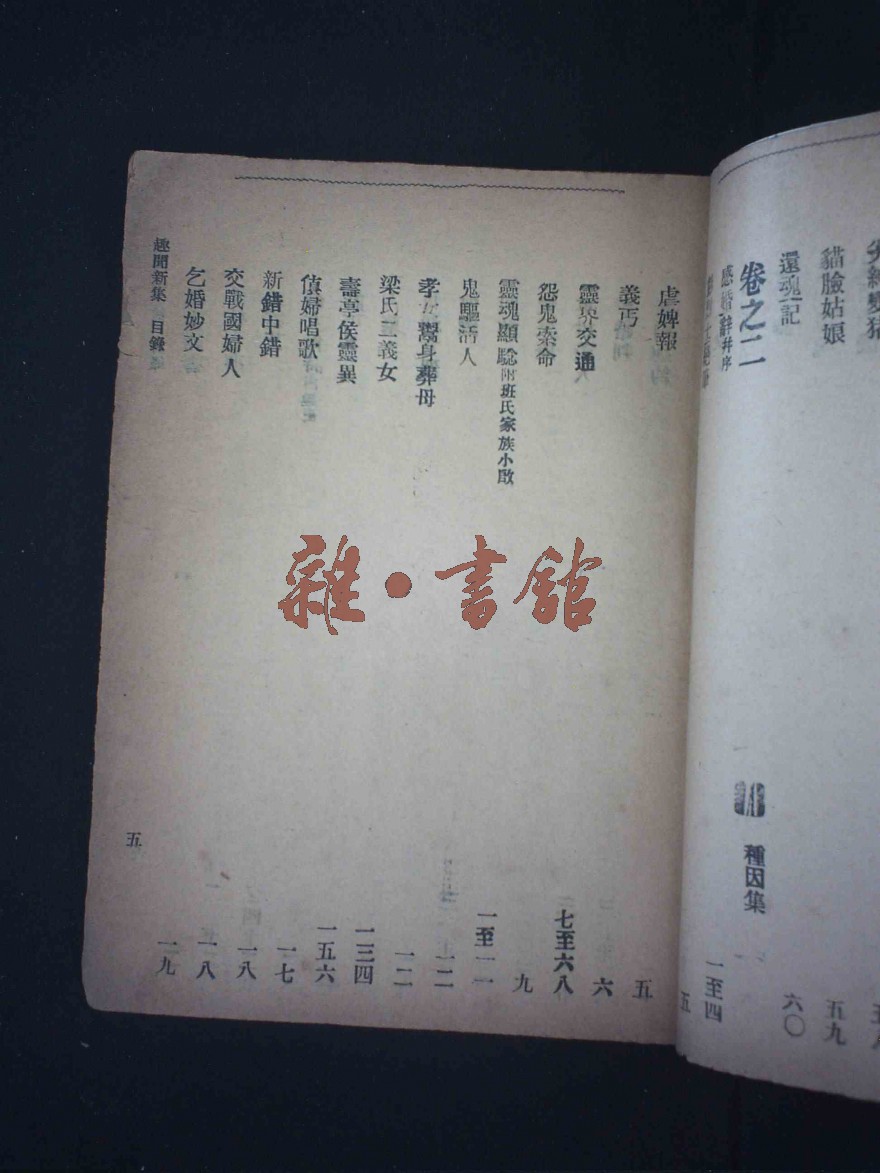 貓臉姑娘 五九
還魂記 六〇
卷之二 種因集
感婚辭并序 一至四
五
虐婢報 五
義丐 六
靈界交通 七至六八
怨鬼索命 九
靈魂顯 附班氏家族小啟 一至一一
鬼驅活人 一二
孝女鬻身葬母 一二
梁氏三義女 一三四
壽亭侯靈異 一五六
婦唱歌 一七
新錯中錯 一八
交戰國婦人 一八
乞婚妙文 一九
趣聞新集 目錄 五
雜·書館